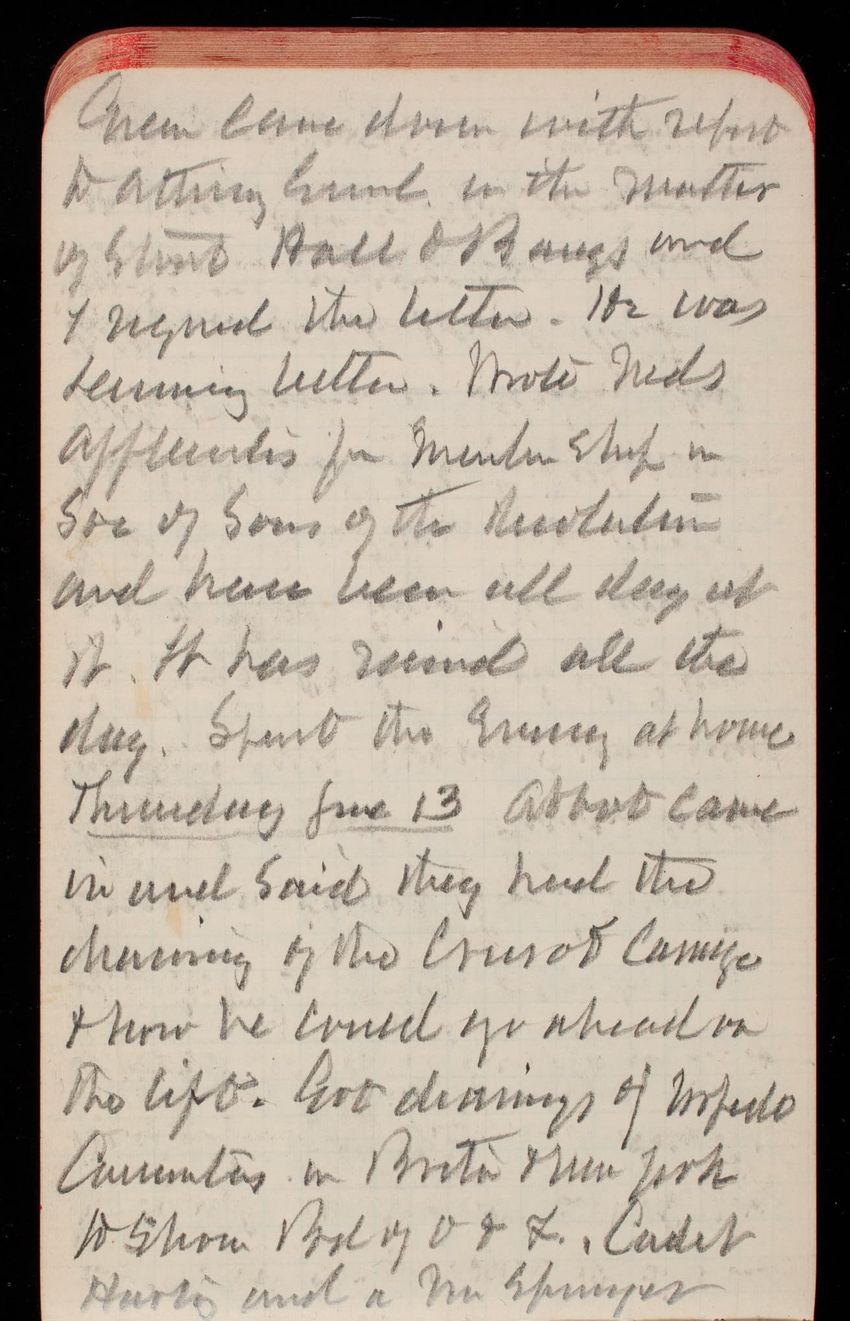 Green came down with report
to Attny Genl. in the matter
of Hall & Bangs and
I signed the letter. He was
feeling better. Wrote Neds
application for Membership in
Soc of Sons of the Revolution
and have been all day at
it. It has rained all the
day. Spent the Evening at home
Thursday June 13 Abbot came
in and said they had the
drawing of the Creusot Carriage
& now he could go ahead on
the lift. Got drawings of torpedo
Casemates in Boston & New York
to show Bd of O & F. Cadet
and a Mr Springer